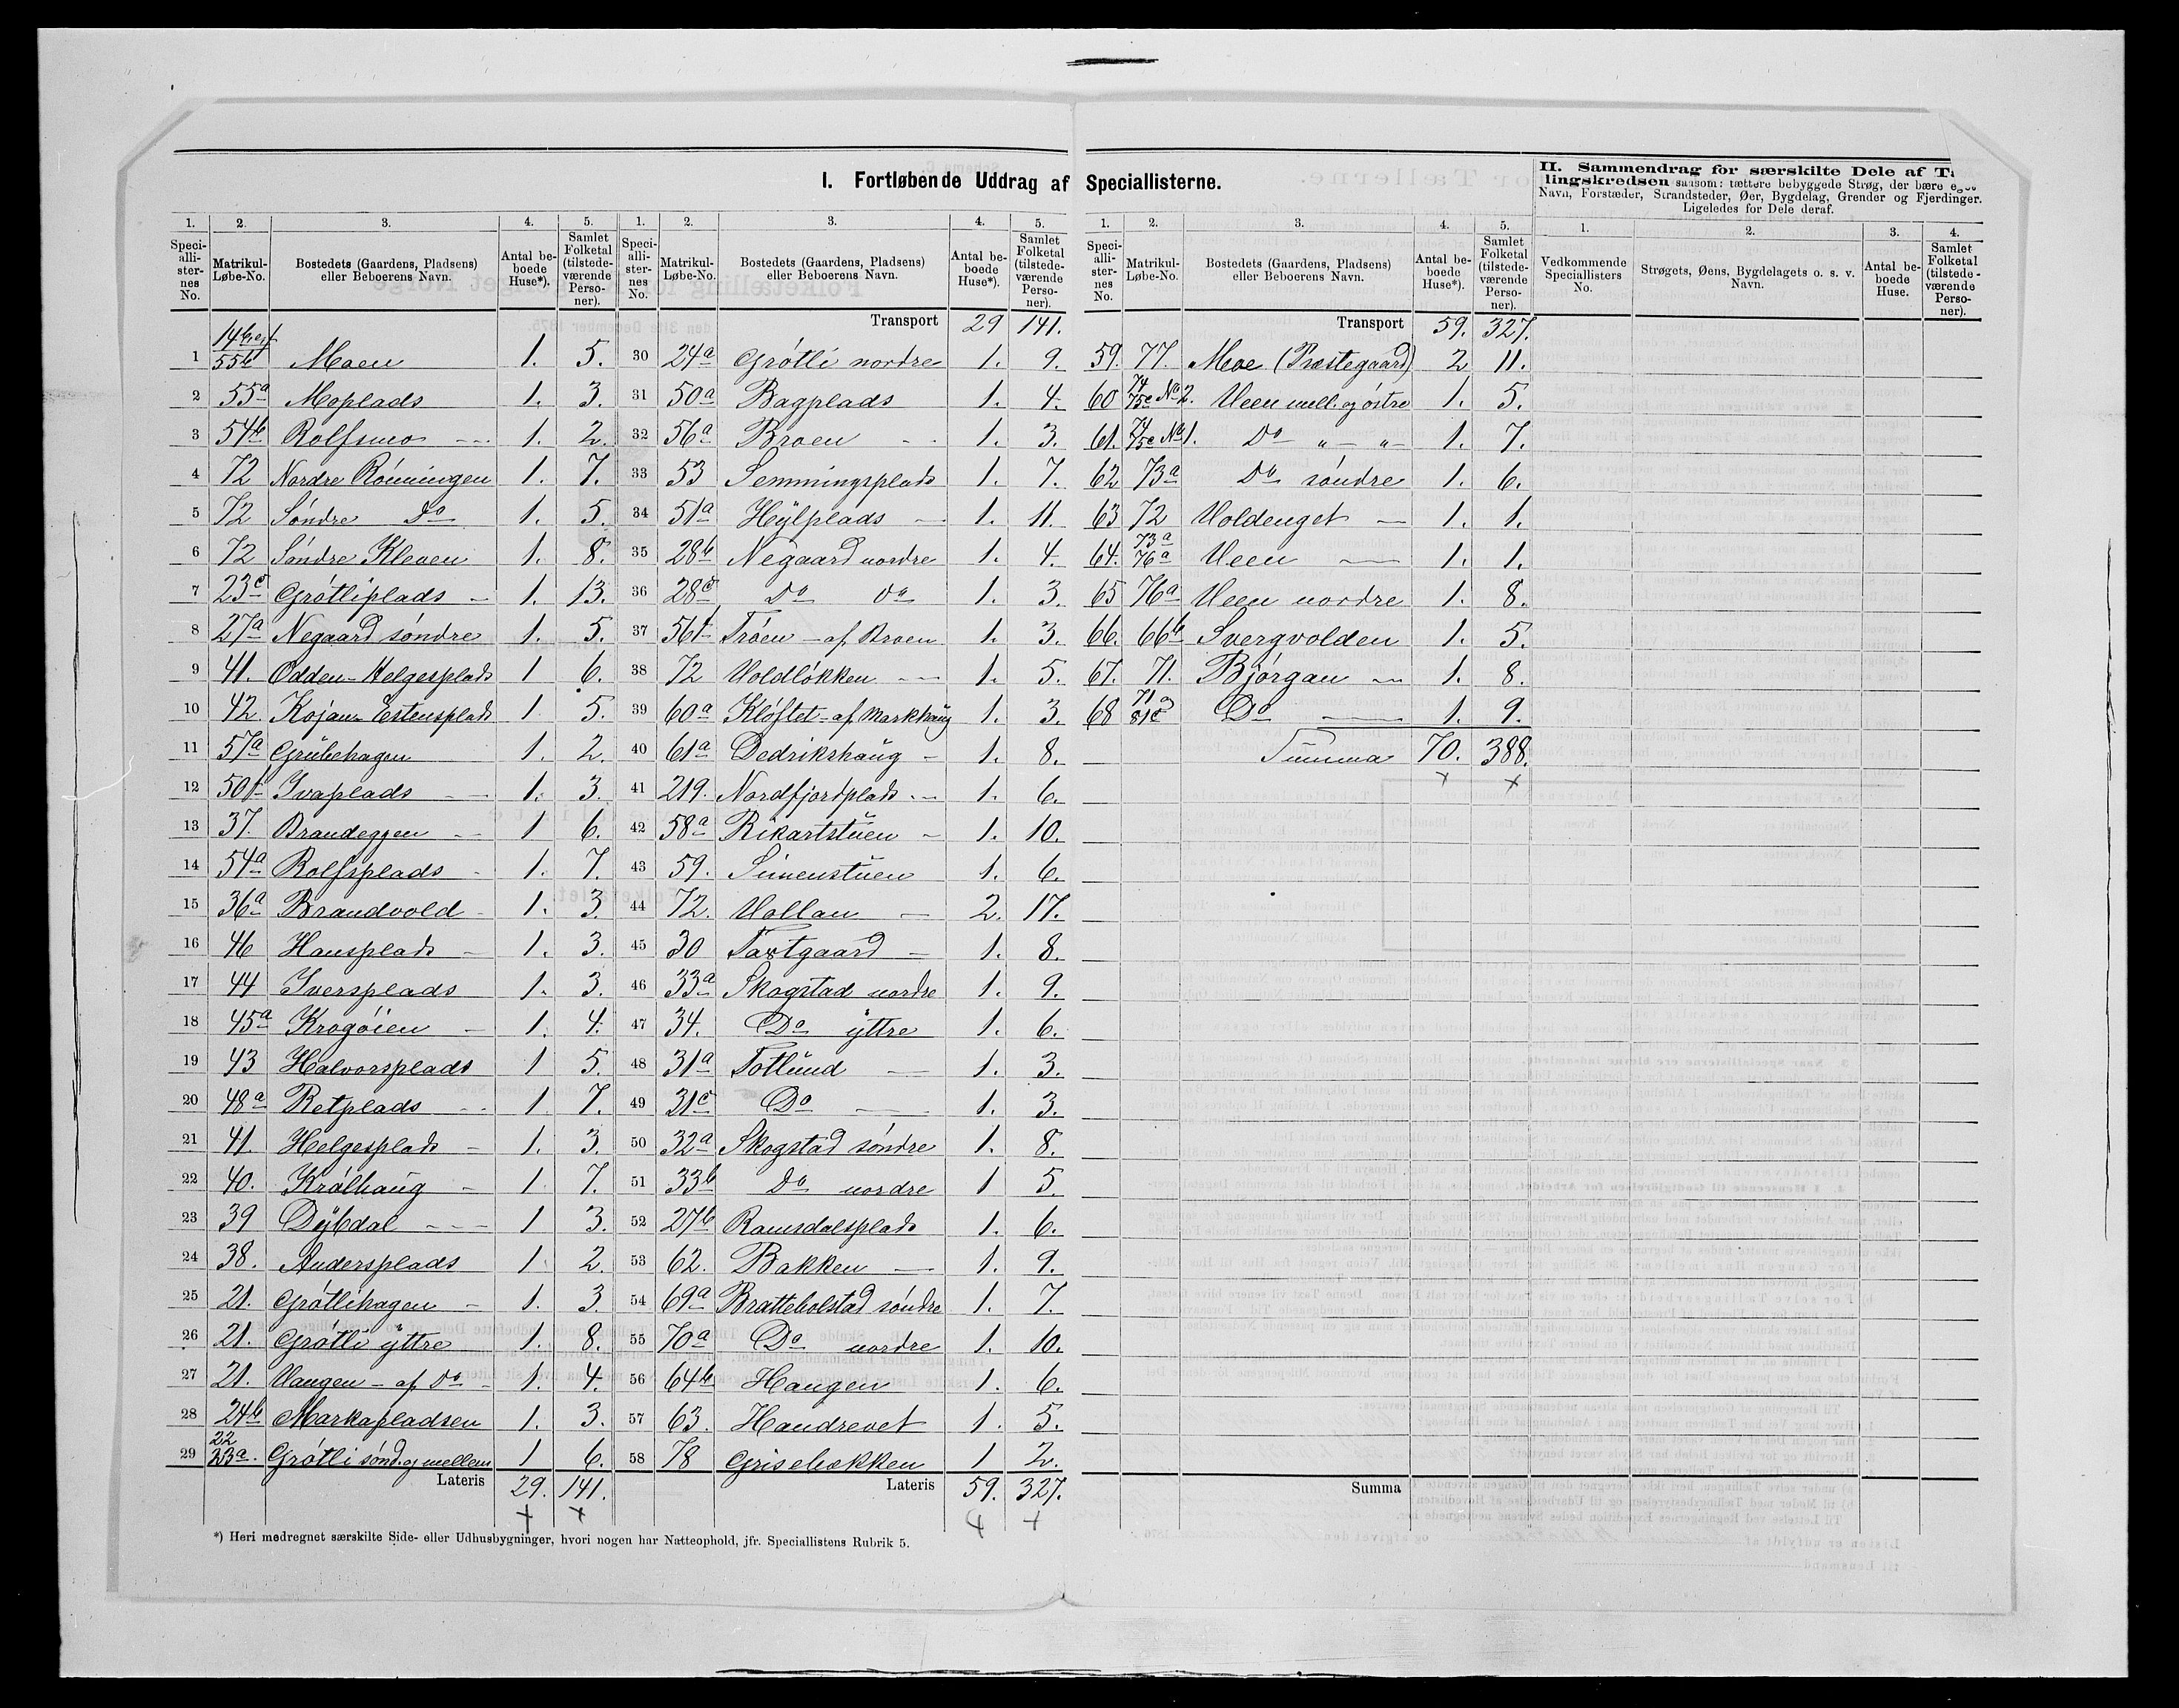 I. Fortløbende Uddrag af Speciallisterne.
II. Sammendrag for særskilte Dele af
lingskredsen saasom: tættere bebyggede Strøg, der bære eget
Navn, Forstæder, Strandsteder, Øer, Bygdelag, Grender og Fjerdinger.
Ligeledes for Dele deraf.
1. 2. 3. 4. 5.
Speciallisternes No. Matrikul-Løbe-No. Bostedets (Gaardens, Pladsens) eller Beboerens Navn. Antal beboede Huse*). Samlet Folketal (tilstedeværende Personer).
1 55b Moen 1. 5.
2 55a Moplads 1. 3.
3 54b Rolfsmo 1. 2.
4 72 Nordre Rönningen 1. 7.
5 72 Söndre Do 1. 5.
6 72 Söndre Kleven 1. 8.
7 23c Grötliplads 1. 13.
8 27a Negaard söndre 1. 5.
9 41. Odden - Helgesplads 1 6.
10 42. Kojan - Estensplads 1 5.
11 57a Grubehagen 1. 2.
12 50b Ivaplads 1. 3.
13 37. Brandeggen 1 6.
14 54a Rolfsplads 1. 7.
15 36a Brandvold 1. 3.
16 46 Hansplads 1. 3.
17 44 Iversplads 1. 3.
18 45a Krogöien 1. 4.
19 43 Halvorsplads 1 5.
20 48a Retplads 1. 7.
21 41. Helgesplads 1. 3.
22 40. Kråkhaug 1 7.
23 39 Dybdal 1 3.
24 38. Andersplads 1 2.
25 21. Grötlihagen 1. 3.
26 21. Grötli yttre 1. 8.
27 21. Vangen - af Do 1. 4.
28 24b Markapladsen 1. 3.
29 22 23a. Grötli sönd. og mellem 1 6.
Lateris 29. 141.
*) Heri medregnet særskilte Side- eller Udhusbygninger, hvori nogen har Natteophold, jfr. Speciallistens Rubrik 5.
1. 2. 3. 4. 5.
Speciallisternes No. Matrikul-Løbe-No. Bostedets (Gaardens, Pladsens) eller Beboerens Navn. Antal beboede Huse*). Samlet Folketal (tilstedeværende Personer).
Transport 29 141.
30 24a Grötli nordre 1. 9.
31 50a Bagplads 1. 4.
32 56a Broen 1. 3.
33 53 Semmingsplads 1. 7.
34 51a Hylplads 1. 11.
35 28b Negaard nordre 1. 4.
36 28c Do Do 1. 3.
37 56b Tröen - af Broen 1. 3.
38 72 Voldlökken 1. 5.
39 60a Klöftet - af Markhaug 1. 3.
40 61a Dedrikshaug 1. 8.
41 219. Nordfjordplads 1. 6.
42 58a Rikartstuen 1. 10.
43 59. Simenstuen 1. 6.
44 72. Vollan 2. 17.
45 30 Tautgaard 1. 8.
46 33a Skogstad nordre 1. 9.
47 34. Do yttre 1. 6.
48 31a Totlund 1. 3.
49 31c Do 1. 3.
50 32a Skogstad söndre 1. 8.
51 33b Do nordre 1 5.
52 27b Ramsdalsplads 1. 6.
53 62. Bakken 1. 9.
54 69a Brattebolstad söndre 1. 7.
55 70a Do nordre 1. 10.
56 64b Haugen 1. 6.
57 63. Haudrevet 1. 5.
58 78 Grisebækken 1 2.
Lateris 59. 327.
1. 2. 3. 4. 5.
Speciallisternes No. Matrikul-Løbe-No. Bostedets (Gaardens, Pladsens) eller Beboerens Navn. Antal beboede Huse*). Samlet Folketal (tilstedeværende Personer).
Transport 59. 327.
59. 77. Moe (Præstegaard) 2 11.
60 74 75c No 2. Veen mell. og östre 1. 5.
61. 74 75c No 1. Do " - " 1. 7.
62 73a Do söndre 1. 6.
63 72 Voldenget 1. 1.
64. 73a 76a Veen 1. 1.
65 76a Veen nordre 1. 8.
66. 66b Svergvolden 1. 5.
67. 71. Bjørgan 1. 8.
68 71 81c Do 1. 9.
Summa 70. 388.
Summa
1. 2. 3. 4.
Vedkommende Speciallisters No. Strøgets, Øens, Bygdelagets o. s. v. Navn. Antal beboede Huse. Samlet Folketal (tilstedeværende Personer).